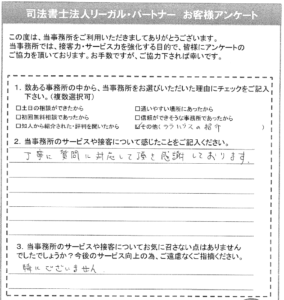 司法書士法人リーガル・パートナー　お客様アンケート
この度は、当事務所をご利用いただきましてありがとうございます。
当事務所では、接客力・サービス力を強化する目的で、皆様にアンケートの
ご協力を頂いております。お手数ですが、ご協力下されば幸いです。
1. 数ある事務所の中から、当事務所をお選びいただいた理由にチェックをご記入
下さい。(複数選択可)
□土日の相談ができたから　□通いやすい場所にあったから
□初回無料相談であったから　□信頼ができそうな事務所であったから
□知人から紹介された・評判を聞いたから　☑その他(の紹介)
2. 当事務所のサービスや接客について感じたことをご記入ください。
丁寧に質問に対応して頂き感謝しております。
3. 当事務所のサービスや接客についてお気に召さない点はありません
でしたでしょうか？今後のサービス向上の為、ご遠慮なくご指摘ください。
特にございません